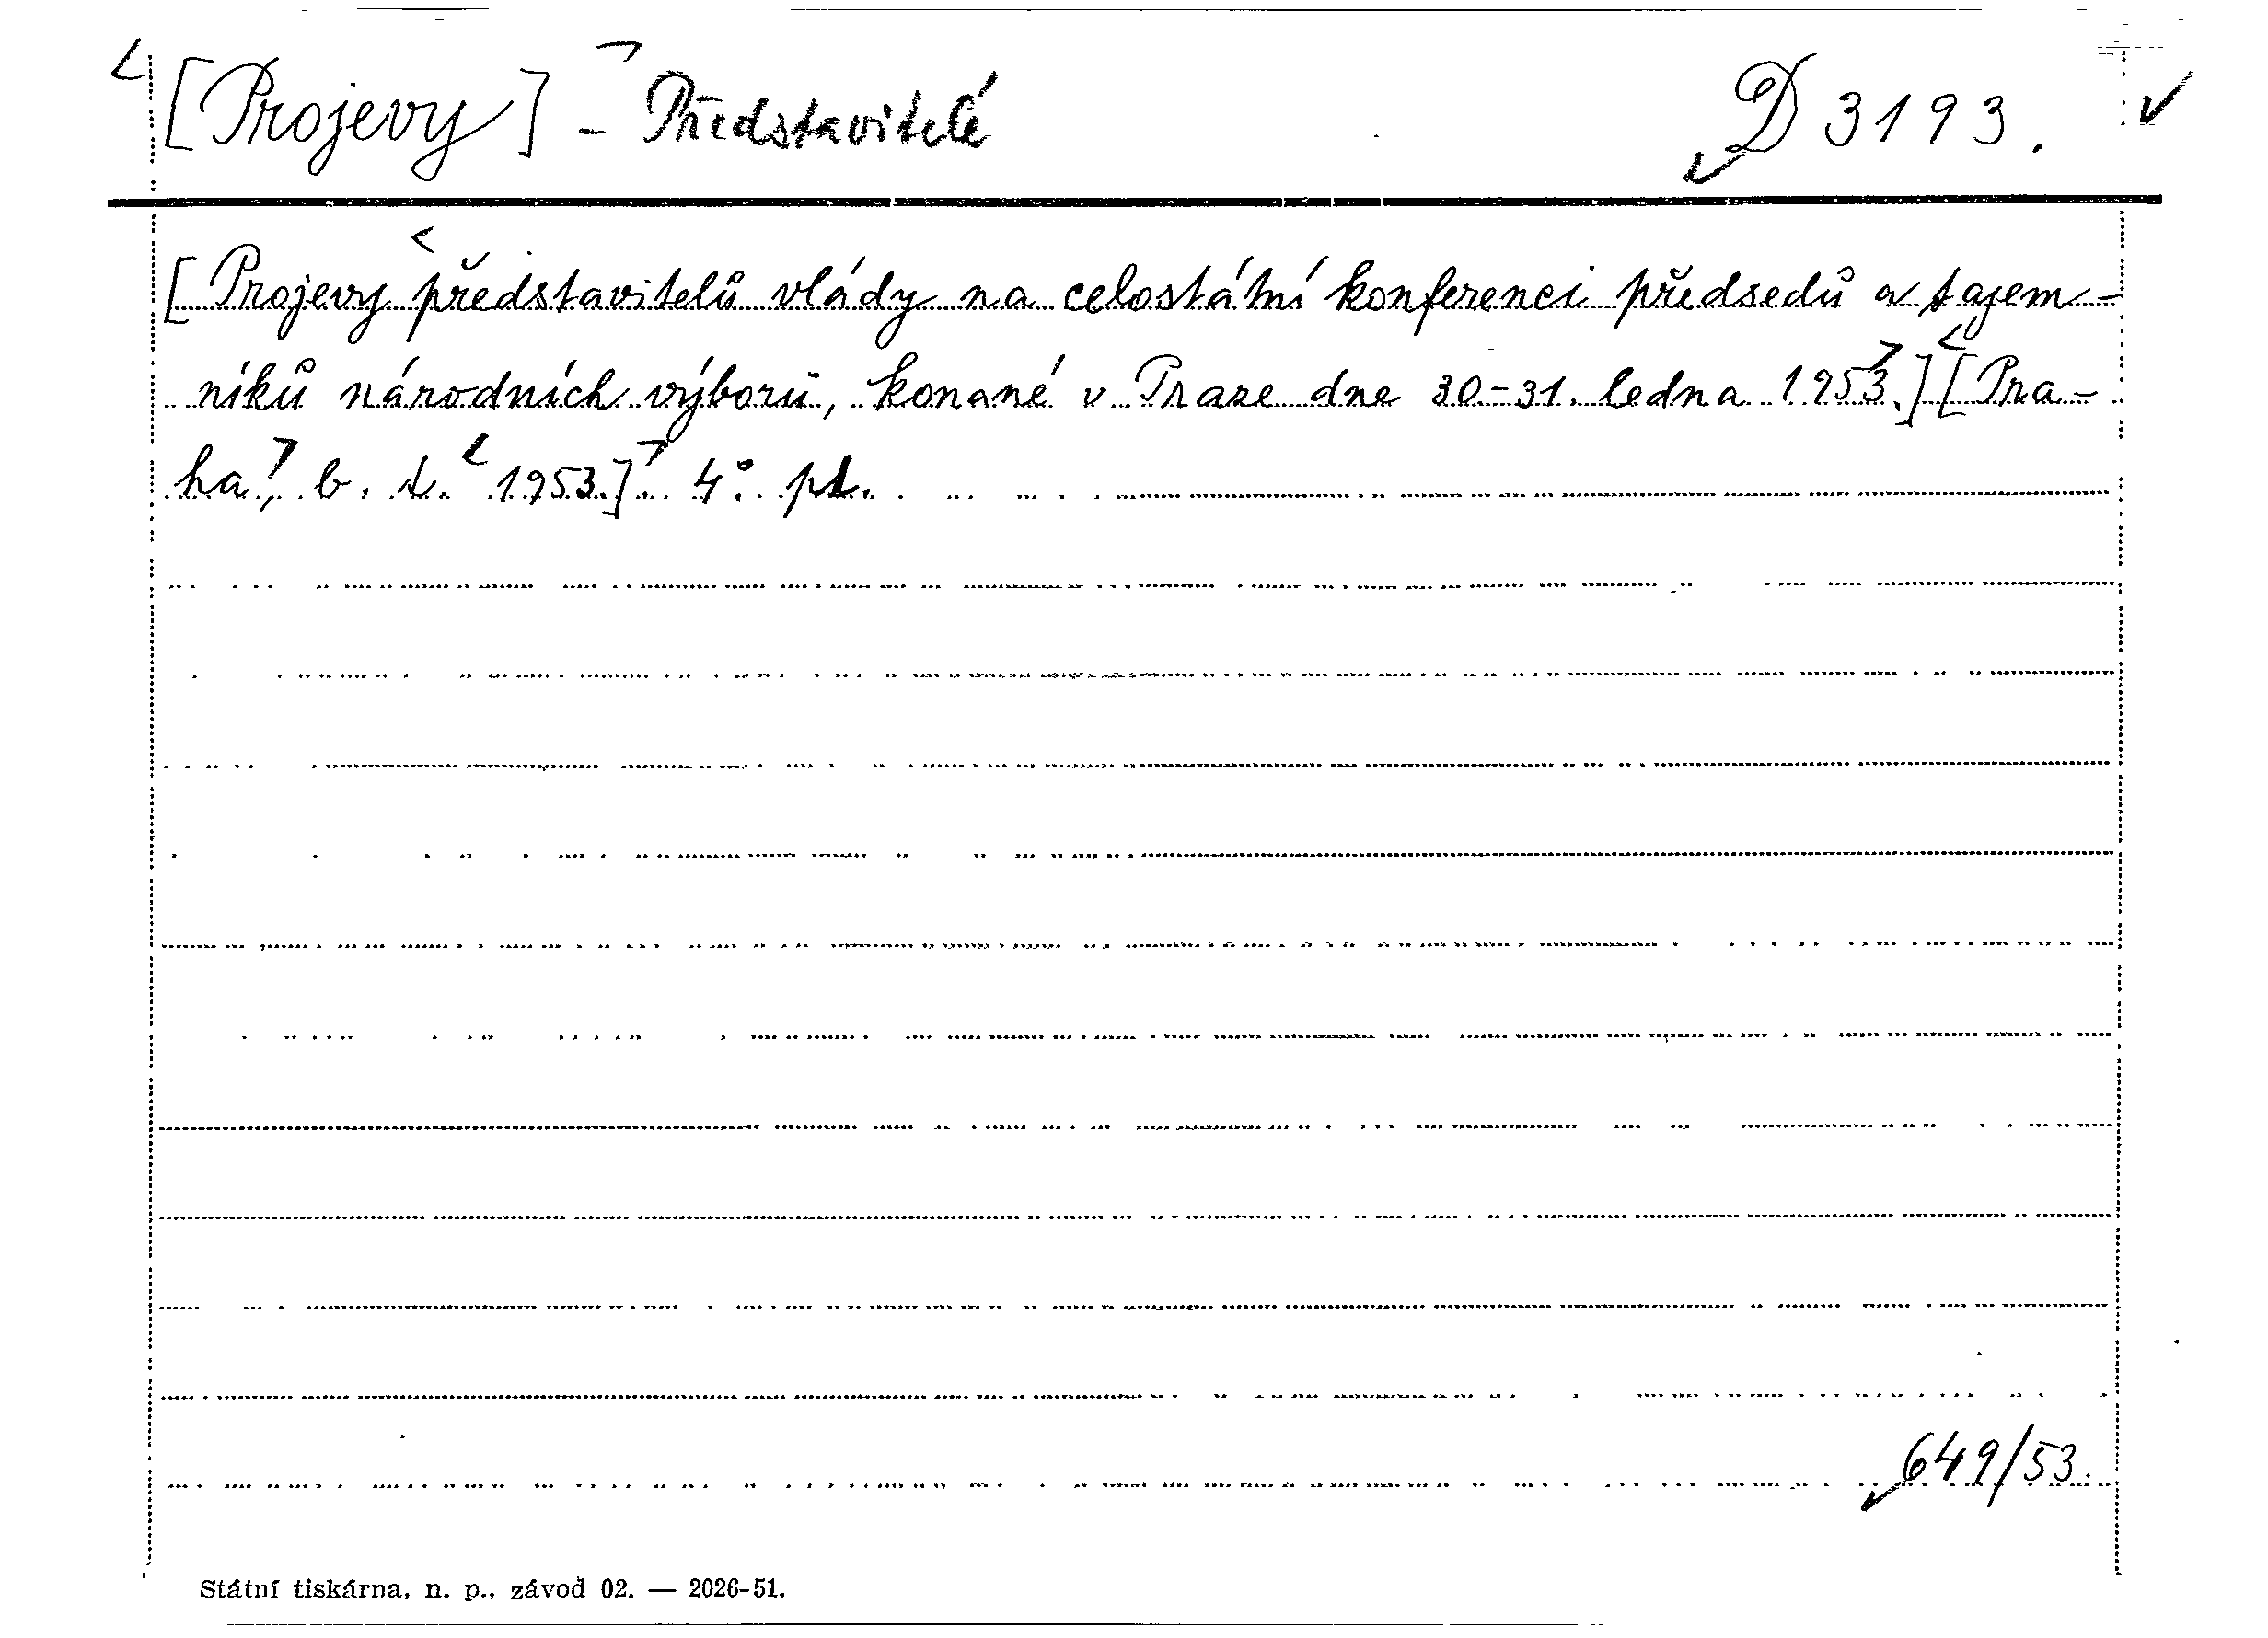 [Projevy] - Představitelé D 3193.
[Projevy představitelů vlády na celostátní konferenci předsedů a tajem-
níků národních výborů, konané v Praze dne 30-31. ledna 1953.] [Pra-
ha, b. t. 1953.] 4° pt.
649/53.
Státní tiskárna, n. p., závod 02. — 2026-51.